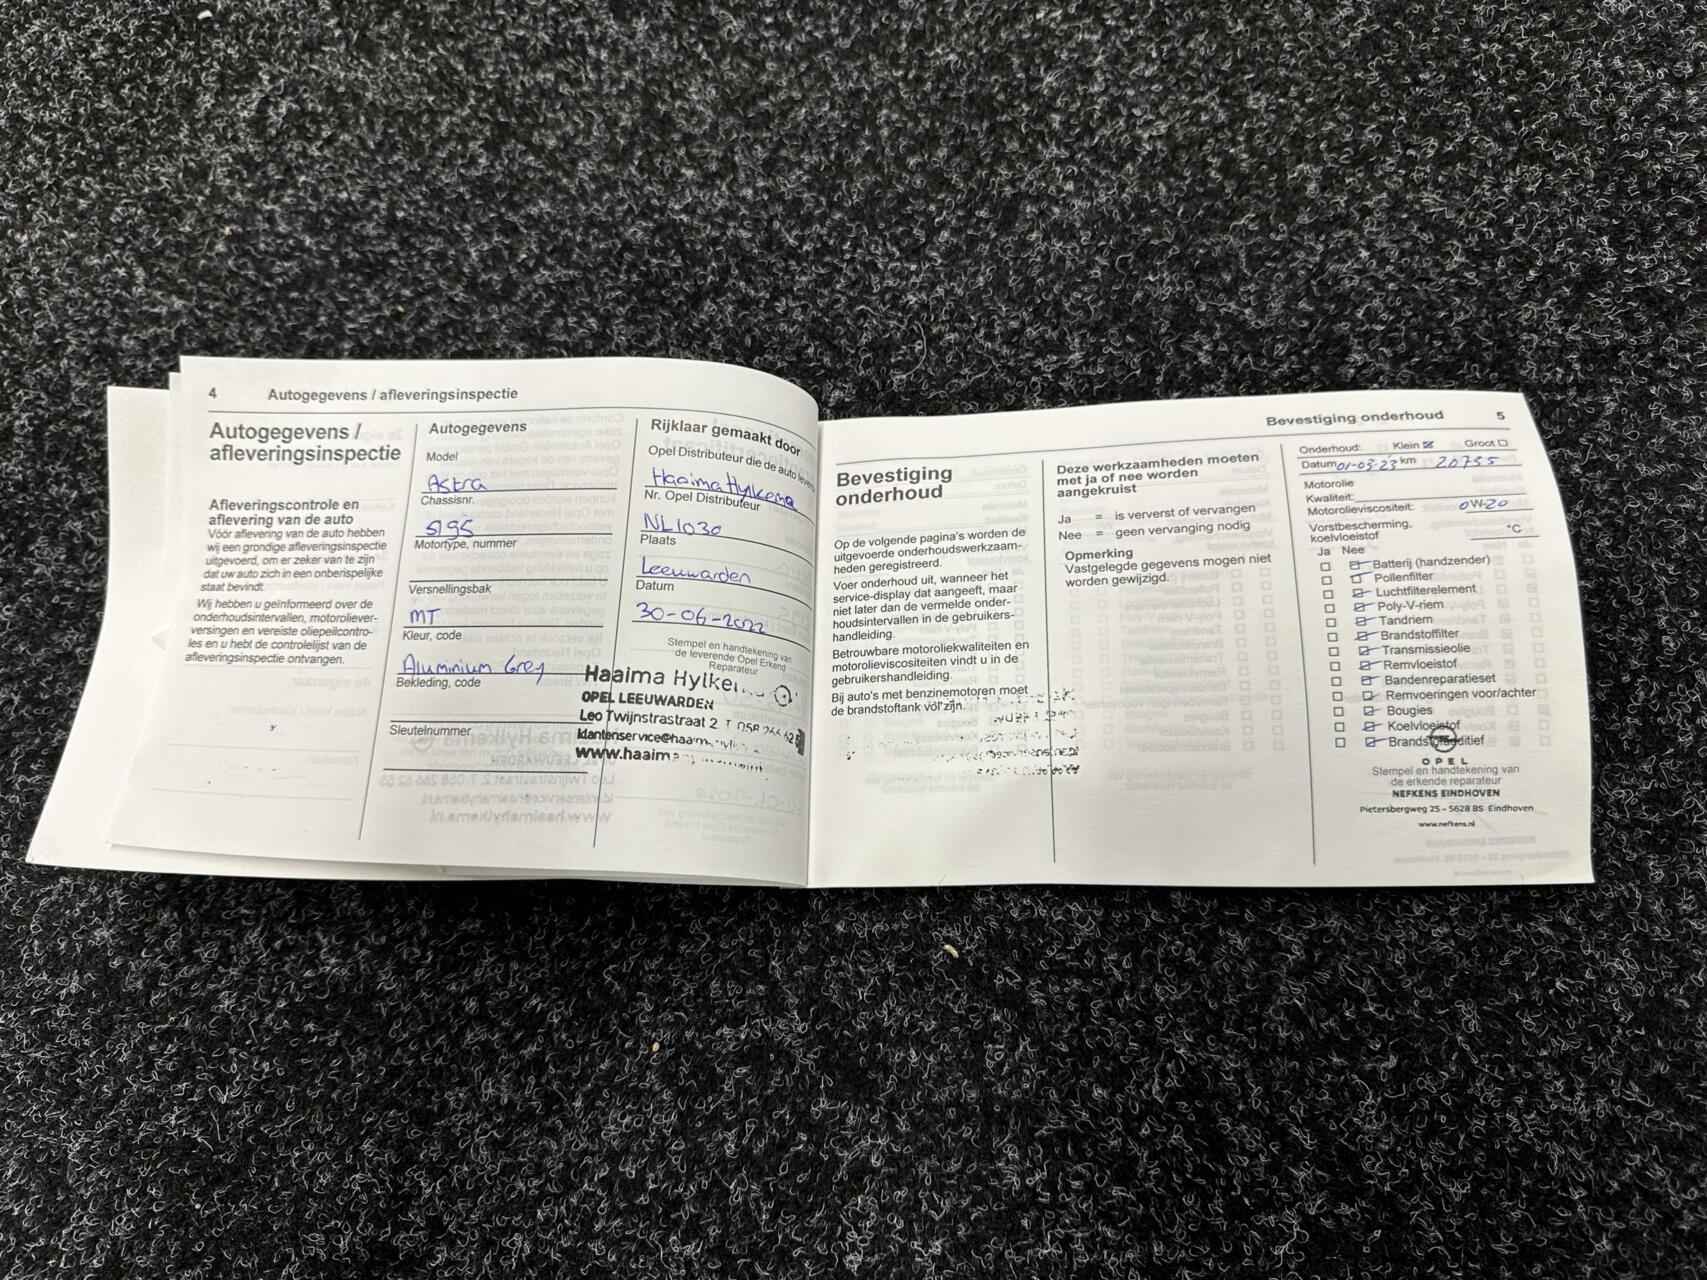 4 Autogegevens / afleveringsinspectie
Autogegevens /
afleveringsinspectie
Afleveringscontrole en
aflevering van de auto
Vóór aflevering van de auto hebben
wij een grondige afleveringsinspectie
uitgevoerd, om er zeker van te zijn
dat uw auto zich in een onberispelijke
staat bevindt.
Wij hebben u geïnformeerd over de
onderhoudsintervallen, motoroliever-
versingen en vereiste oliepeilcontro-
les en u hebt de controlelijst van de
afleveringsinspectie ontvangen.
Autogegevens
Model
Astra
Chassisnr.
5195
Motortype, nummer
Versnellingsbak
MT
Kleur, code
Aluminium Grey
Bekleding, code
Sleutelnummer
Rijklaar gemaakt door
Opel Distributeur die de auto
Haaima Hylkema
Nr. Opel Distributeur
NL1030
Plaats
Leeuwarden
Datum
30-06-2022
Stempel en handtekening van
de leverende Opel Erkend
Reparateur
Haaima
OPEL LEEUWARDEN
Leo Twijnstrastraat 2
www.
Bevestiging onderhoud 5
Bevestiging
onderhoud
Op de volgende pagina's worden de
uitgevoerde onderhoudswerkzaam-
heden geregistreerd.
Voer onderhoud uit, wanneer het
service-display dat aangeeft, maar
niet later dan de vermelde onder-
houdsintervallen in de gebruikers-
handleiding.
Betrouwbare motoroliekwaliteiten en
motorolieviscositeiten vindt u in de
gebruikershandleiding.
Bij auto's met benzinemotoren moet
de brandstoftank vol zijn.
Deze werkzaamheden moeten
met ja of nee worden
aangekruist
Ja = is ververst of vervangen
Nee = geen vervanging nodig
Opmerking
Vastgelegde gegevens mogen niet
worden gewijzigd.
Onderhoud: Klein Groot
Datum 01-03-23 km 20735
Motorolie
Kwaliteit:
Motorolieviscositeit: 0W-20
Vorstbescherming,
koelvloeistof °C
Ja Nee
Batterij (handzender)
Pollenfilter
Luchtfilterelement
Poly-V-riem
Tandriem
Brandstoffilter
Transmissieolie
Remvloeistof
Bandenreparatieset
Remvoeringen voor/achter
Bougies
Koelvloeistof
Brandstofadditief
OPEL
Stempel en handtekening van
de erkende reparateur
NEFKENS EINDHOVEN
Pietersbergweg 25 - 5628 BS Eindhoven
www.nefkens.nl